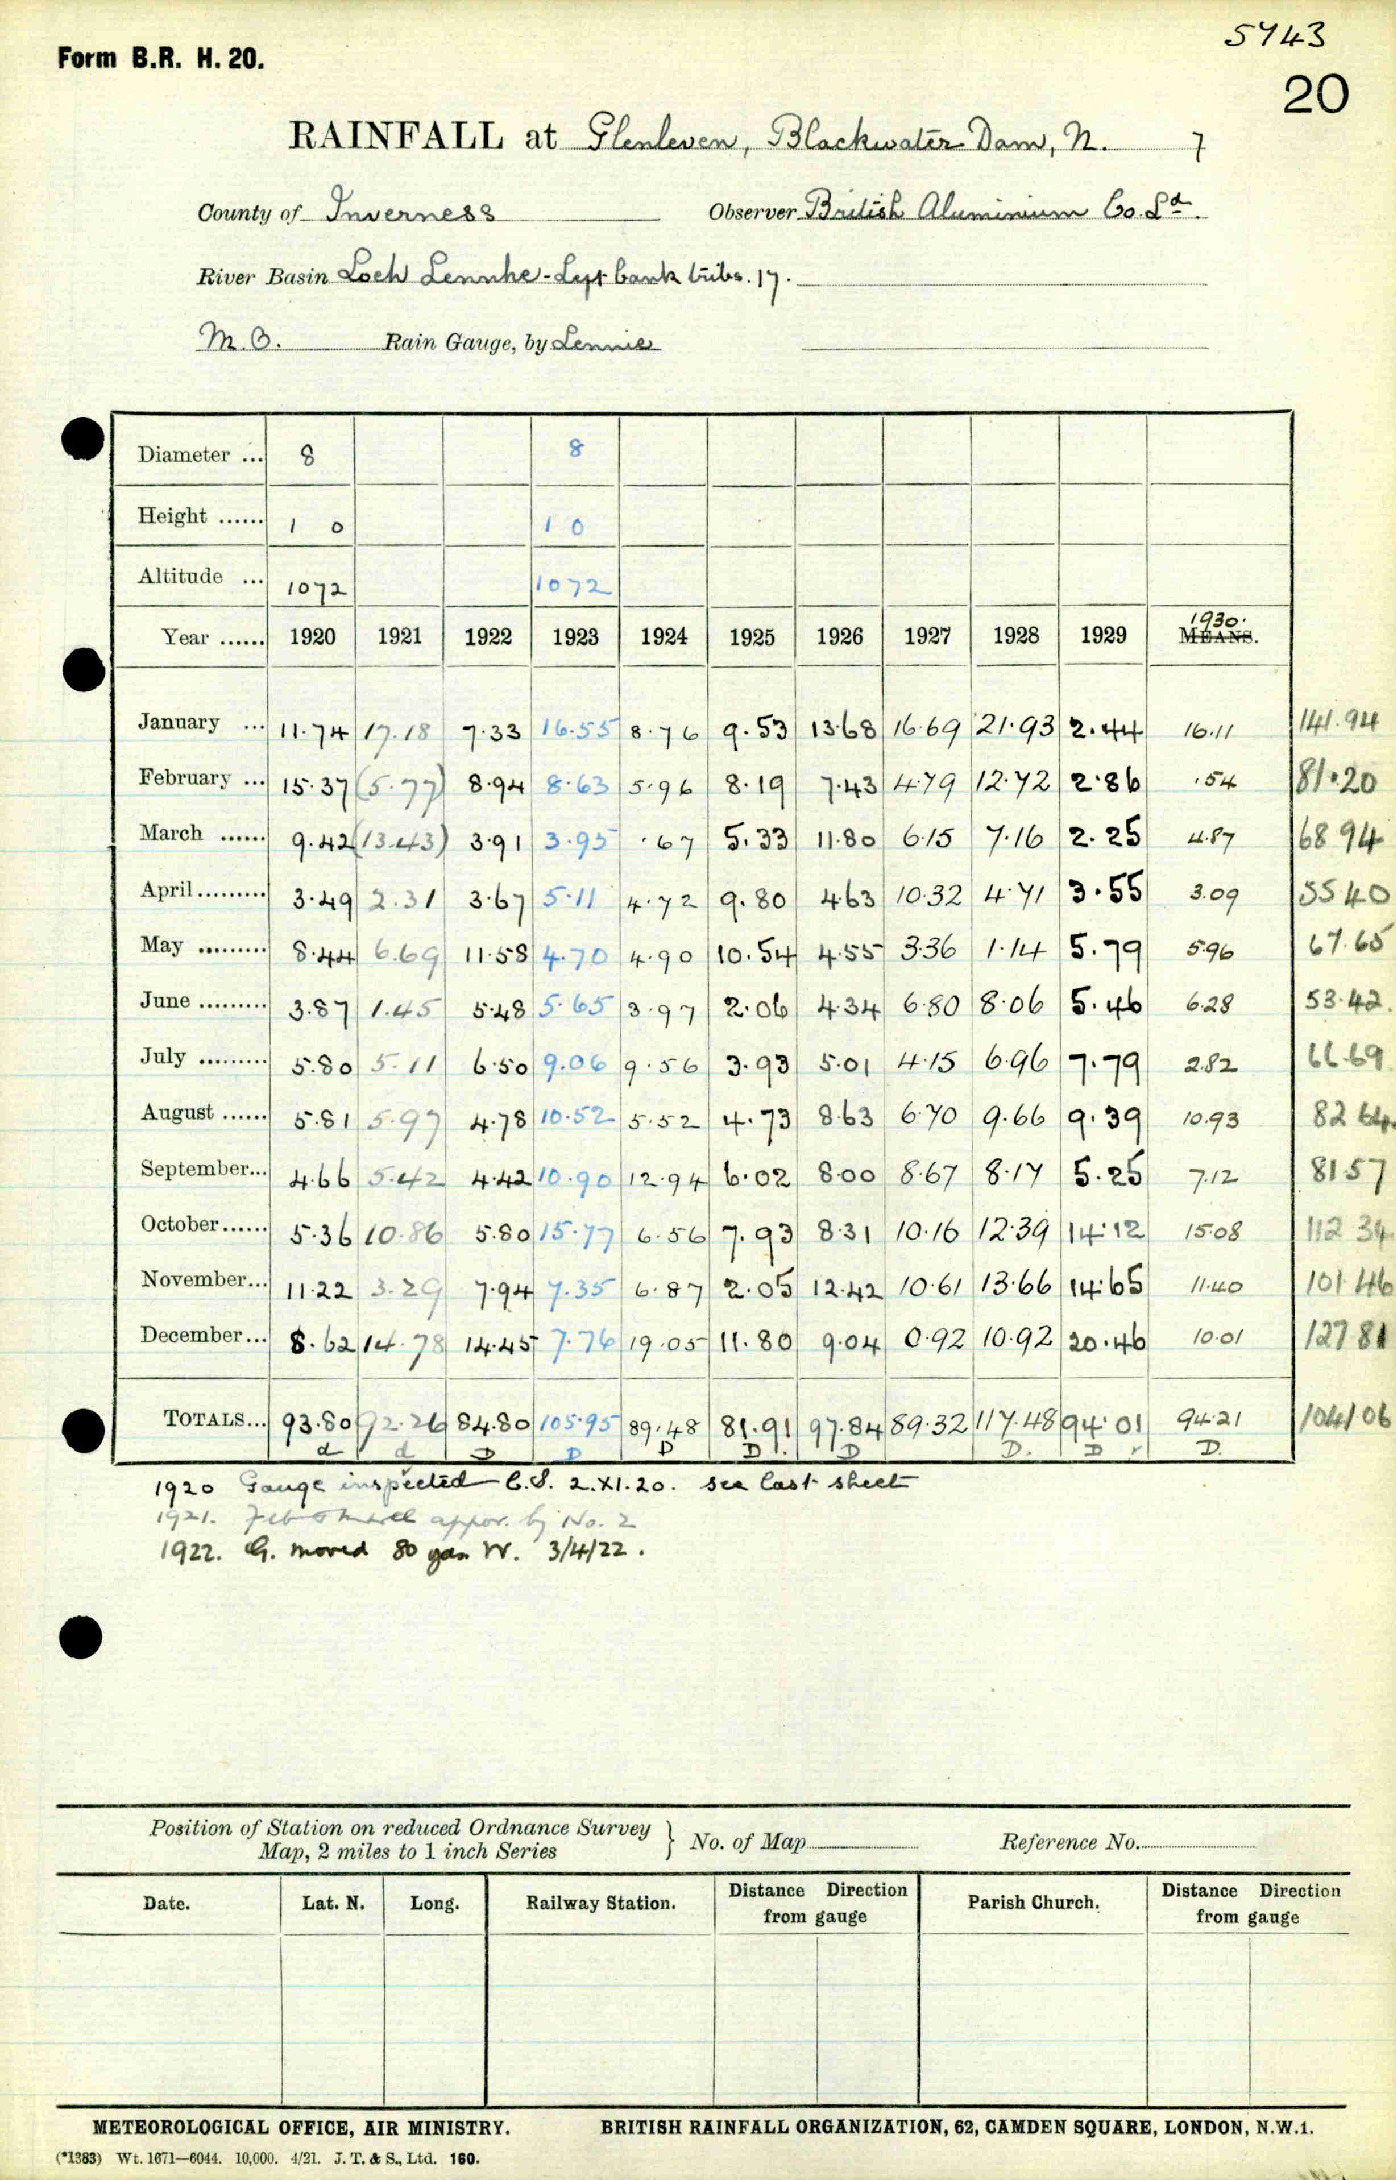 5743
Form B.R. H. 20.
20
RAINFALL at Glenleven, Blackwater Dam, N. 7
County of Inverness Observer British Aluminium Co. Ld.
River Basin Loch Lennhe - Left bank tribs. 17.
M.O. Rain Gauge, by Lennie
Diameter ... 8 8
Height ...... 1 0 1 0
Altitude ... 1072 1072
Year ...... 1920 1921 1922 1923 1924 1925 1926 1927 1928 1929 1930. MEANS.
January ... 11.74 17.18 7.33 16.55 8.76 9.53 13.68 16.69 21.93 2.44 16.11 141.94
February ... 15.37 (5.77) 8.94 8.63 5.96 8.19 7.43 4.79 12.72 2.86 .54 81.20
March ...... 9.42 (13.43) 3.91 3.95 .67 5.33 11.80 6.15 7.16 2.25 4.87 68 94
April ......... 3.49 2.31 3.67 5.11 4.72 9.80 4.63 10.32 4.71 3.55 3.09 55 40
May ......... 8.44 6.69 11.58 4.70 4.90 10.54 4.55 3.36 1.14 5.79 5.96 67.65
June ......... 3.87 1.45 5.48 5.65 3.97 2.06 4.34 6.80 8.06 5.46 6.28 53.42.
July ......... 5.80 5.11 6.50 9.06 9.56 3.93 5.01 4.15 6.96 7.79 2.82 66.69
August ...... 5.81 5.97 4.78 10.52 5.52 4.73 8.63 6.70 9.66 9.39 10.93 82 64.
September... 4.66 5.42 4.42 10.90 12.94 6.02 8.00 8.67 8.17 5.25 7.12 81 57
October...... 5.36 10.86 5.80 15.77 6.56 7.93 8.31 10.16 12.39 14.12 15.08 112 34
November... 11.22 3.29 7.94 7.35 6.87 2.05 12.42 10.61 13.66 14.65 11.40 101 46
December... 8.62 14.78 14.45 7.76 19.05 11.80 9.04 0.92 10.92 20.46 10.01 127 81
TOTALS... 93.80 92.26 84.80 105.95 89.48 81.91 97.84 89.32 117.48 94.01 94.21 1041 06
d d D D D D. D D. D r D.
1920 Gauge inspected C.S. 2.XI.20. see last sheet
1921. Feb & March appor. by No. 2
1922. G. moved 80 yds W. 3/4/22.
Position of Station on reduced Ordnance Survey
Map, 2 miles to 1 inch Series } No. of Map Reference No.
Date. Lat. N. Long. Railway Station. Distance Direction from gauge Parish Church. Distance Direction from gauge
METEOROLOGICAL OFFICE, AIR MINISTRY. BRITISH RAINFALL ORGANIZATION, 62, CAMDEN SQUARE, LONDON, N.W.1.
(*1383) Wt. 1671—6044. 10,000. 4/21. J. T. & S., Ltd. 160.